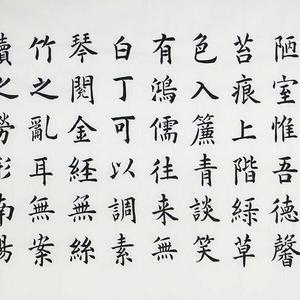 陋室惟吾德馨
苔痕上階緑草
色入簾青談笑
有鴻儒往来無
白丁可以調素
琴閱金経無絲
竹之亂耳無案
牘之勞形南陽